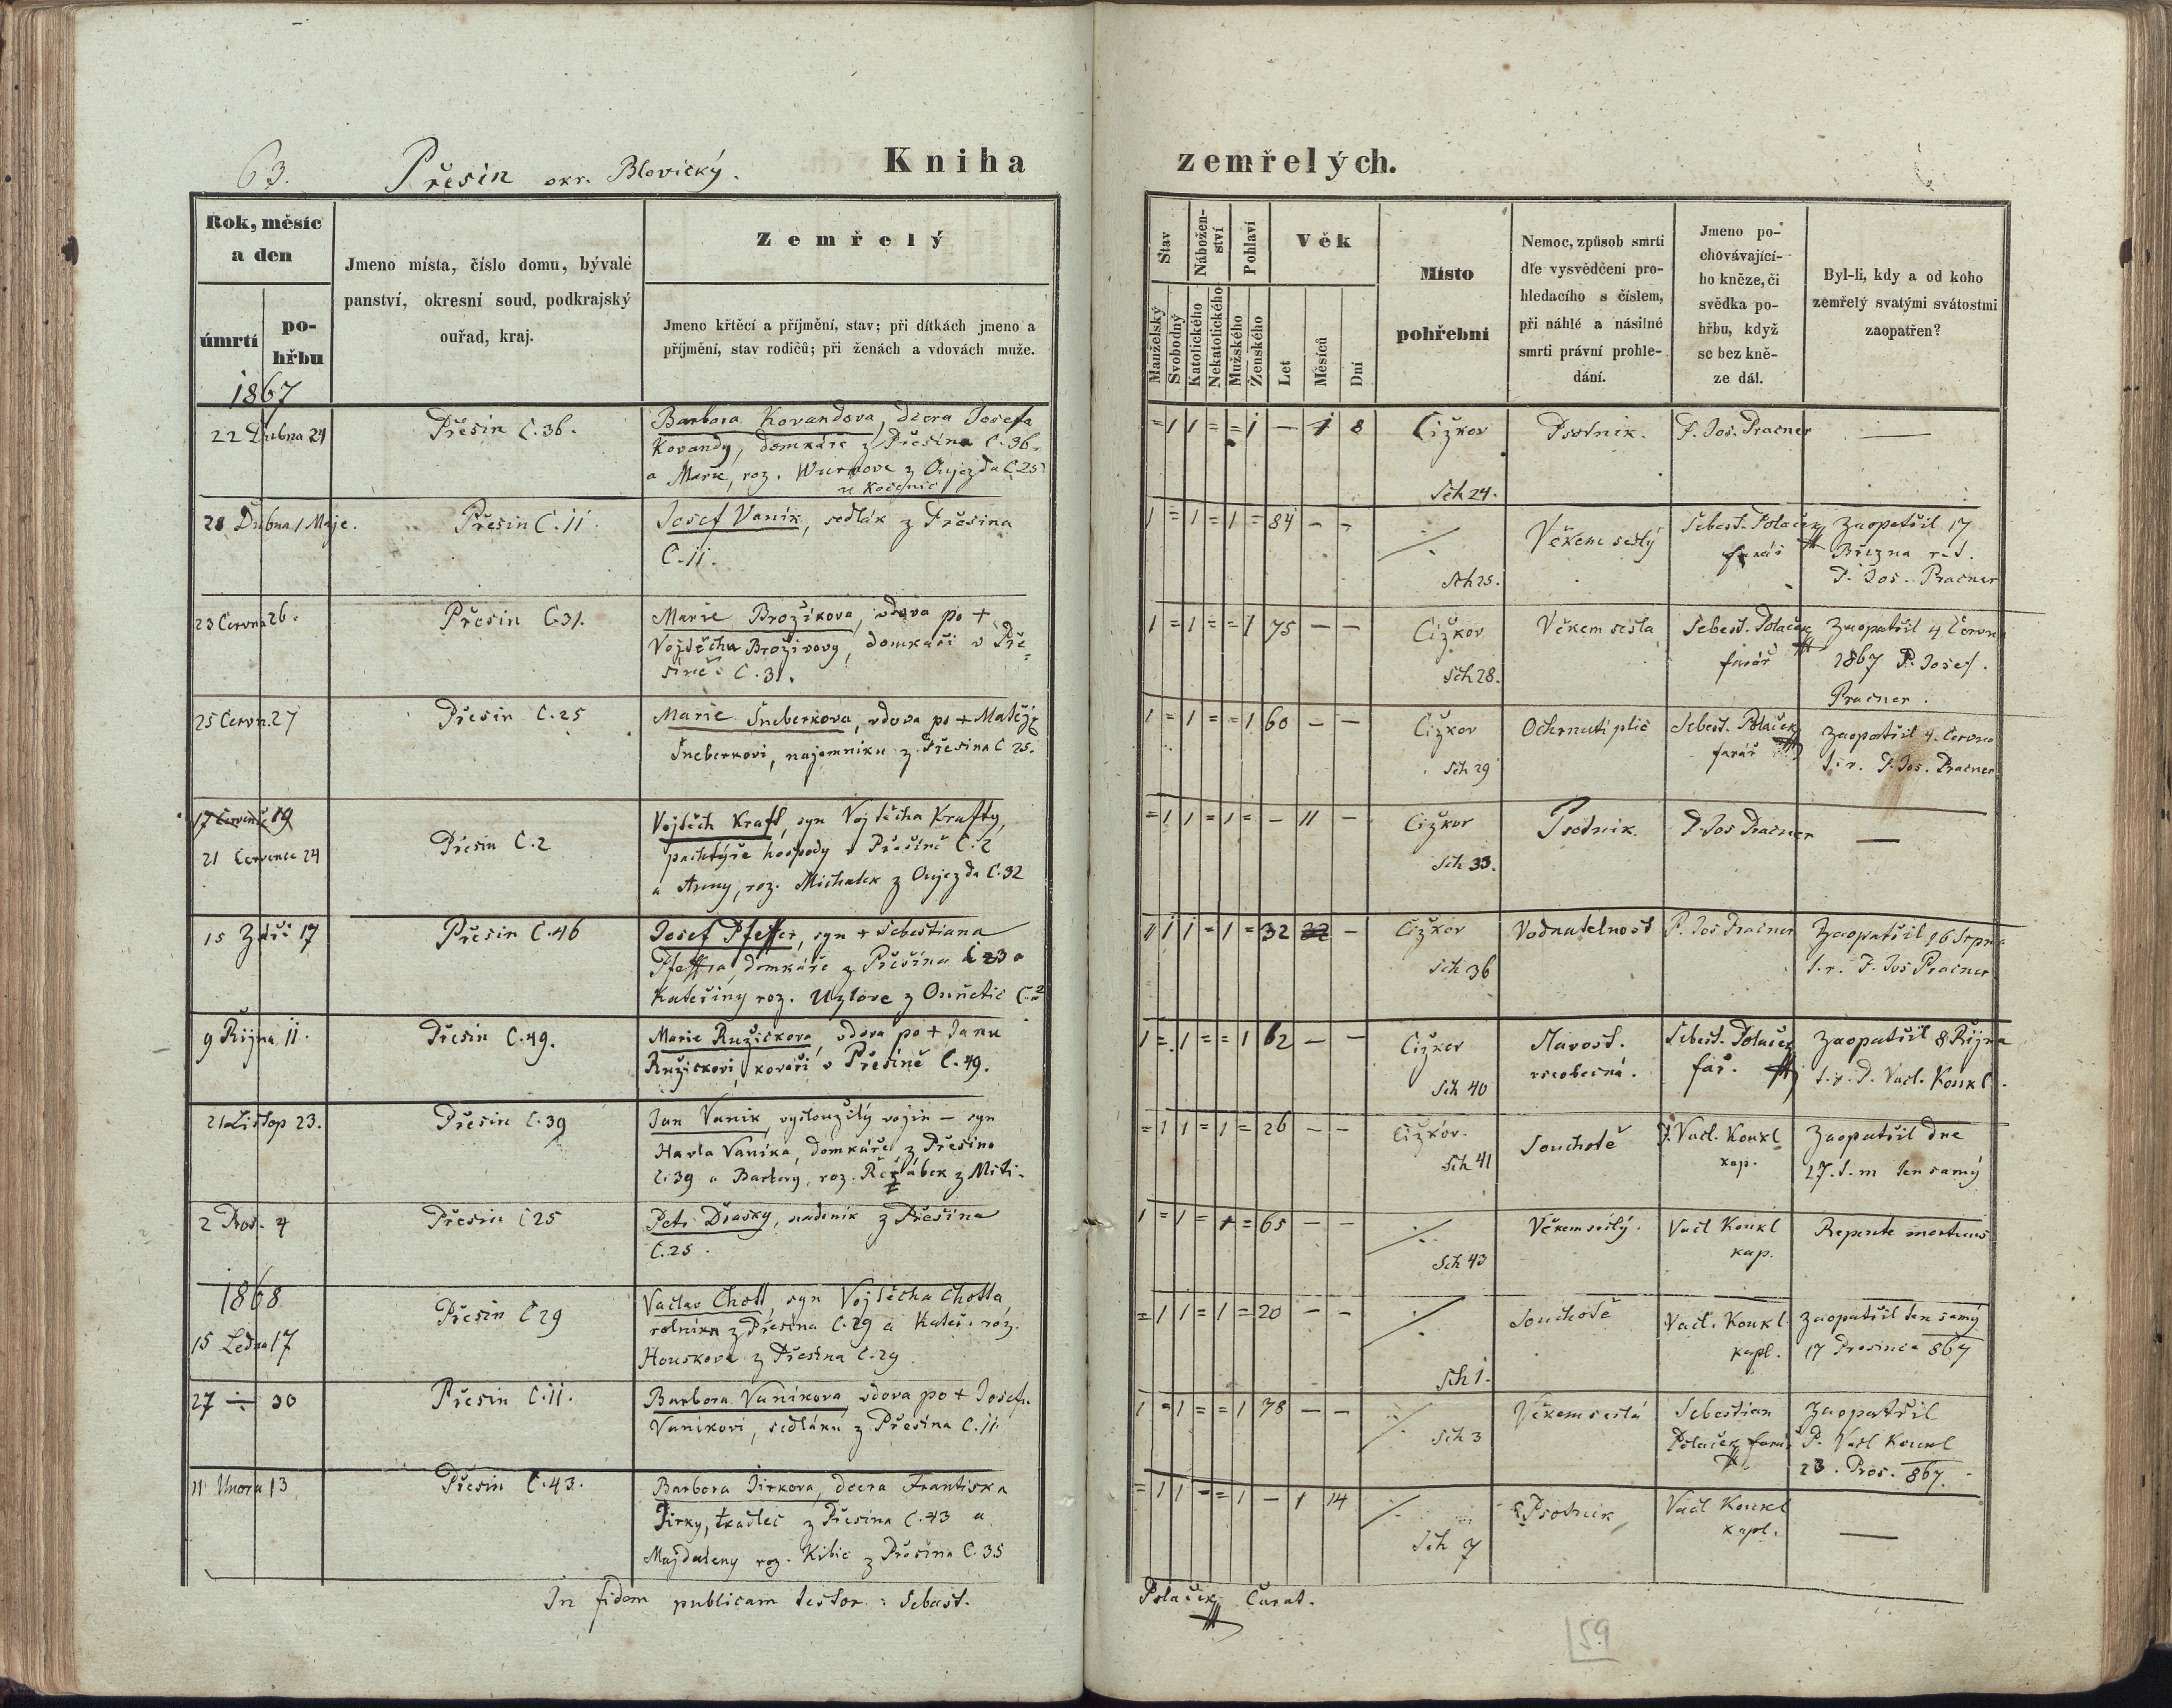 63. Přesin okr. Blovický.
Kniha zemřelých.
Rok, měsíc
a den
úmrtí
po-
hřbu
Jmeno místa, číslo domu, bývalé
panství, okresní soud, podkrajský
ouřad, kraj.
Zemřelý
Jmeno křtěcí a příjmění, stav; při dítkách jmeno a
příjmění, stav rodičů; při ženách a vdovách muže.
Stav
Manželský
Svobodný
Nábožen-
ství
Katolického
Nekatolického
Pohlaví
Mužského
Ženského
Věk
Let
Měsíců
Dní
Místo
pohřební
Nemoc, způsob smrti
dle vysvědčení pro-
hledacího s číslem,
při náhlé a násilné
smrti právní prohle-
dání.
Jmeno po-
chovávající-
ho kněze, či
svědka po-
hřbu, když
se bez kně-
ze dál.
Byl-li, kdy a od koho
zemřelý svatými svátostmi
zaopatřen?
1867
22 Dubna 24
Přesin C. 36.
Barbora Kovandova, dcera Josefa
Kovandy, domkáře z Přesina C. 36.
a Marie, roz. z Oujezda C. 25
u Kočenic
= 1 1 = = 1 — 1 8
Čižkov
Sch 24.
Psotnik.
P. Jos. Pracner
—
28 Dubna 1 Maje.
Přesin C. 11
Josef Vanik, sedlák z Přesina
C. 11.
1 = 1 = 1 = 84 – –
Sch 25.
Věkem sešlý
Sebest. Polaček
farář
Zaopatřil 17
Března r. t.
P. Jos. Pracner
23 Červn 26.
Přesin C. 31.
Marie Brožikova, vdova po +
Vojtěchu Brožikovy, domkáři v Pře-
sině C. 31.
1 = 1 = = 1 75 – –
Čižkov
Sch 28.
Věkem sešla
Sebest. Polaček
farář
Zaopatřil 4 Června
1867 P. Josef.
Pracner.
25 Červn. 27
Přesin C. 25
Marie Šneberkova, vdova po + Matěji
Šneberkovi, najemniku z Přesina C 25.
1 = 1 = = 1 60 – –
Čižkov
Sch 29
Ochrnutí plic
Sebest. Polaček
farář
Zaopatřil 4. Června
t. r. P. Jos. Pracner
17 Července 19
21 Července 24
Přesin C. 2
Vojtěch Kraft, syn Vojtěcha Krafty,
pachtýře hospody v Přesině C. 2
a Anny, roz. Michalek z Oujezda C. 32
= 1 1 = 1 = – 11 –
Čižkov
Sch 33.
Psotnik
P. Jos Pracner
—
15 Září 17
Přesin C. 46
Josef Pfeffer, syn + Sebestiana
Pfeffra, domkáře z Přesina C 23 a
Kateřiny roz. Uzlove z Ounětic C. 2
1 1 = 1 = 32 –
Čižkov
Sch 36
Vodnatelnost
P. Jos Pracner
Zaopatřil 16 Srpna
t. r. P. Jos Pracner
9 Října 11.
Přesin C. 49.
Marie Ružickova, vdova po + Janu
Ružickovi, kováři v Přesině C. 49.
1 = 1 = = 1 62 – –
Čižkov
Sch 40
Slavost.
vseobecná.
Sebest. Polaček
far.
Zaopatřil 8 Října
t. r. P. Vacl. Koukl.
21 Listop 23.
Přesin C. 39
Jan Vanik, vysloužilý vojin – syn
Havla Vanika, domkáře z Přesina
C. 39 a Barbory, roz. Řežábek z Miti-
= 1 1 = 1 = 26 – –
Čižkov.
Sch 41
Souchotě
P. Vacl. Koukl
kap.
Zaopatřil dne
17. t. m ten samý
2 Pros. 4
Přesin C 25
Petr Drasky, nadenik z Přesina
C. 25.
1 = 1 = 1 = 65 – –
Sch 43
Věkem sešlý.
Vacl Koukl
kap.
Repente mortuus
1868
15 Ledna 17
Přesin C 29
Vaclav Chott, syn Vojtěcha Chotta,
rolnika z Přesina C. 29 a Kateř. roz.
Houskove z Přesina C. 29
= 1 1 = 1 = 20 – –
Sch 1.
Souchotě
Vacl. Koukl
kapl.
Zaopatřil ten samý
17 Prosince 867
27 ÷ 30
Přesin C. 11.
Barbora Vanikova, vdova po + Josefu
Vanikovi, sedláku z Přesina C. 11.
1 = 1 = = 1 78 – –
Sch 3
Věkem sešlá
Sebestian
Polaček farář
Zaopatřil
P. Vacl Koukl
23. Pros. 867.
11 Unora 13
Přesin C. 43.
Barbora Jirkova, dcera Frantiska
Jirky, tkadlec z Přesina C. 43 a
Majdaleny roz. Kibic z Přesina C. 35
= 1 1 – = 1 – 1 14
Sch 7
Psotnik
Vacl Koukl
kapl.
—
In fidem publicam testor: Sebast. Polaček Curat.
59